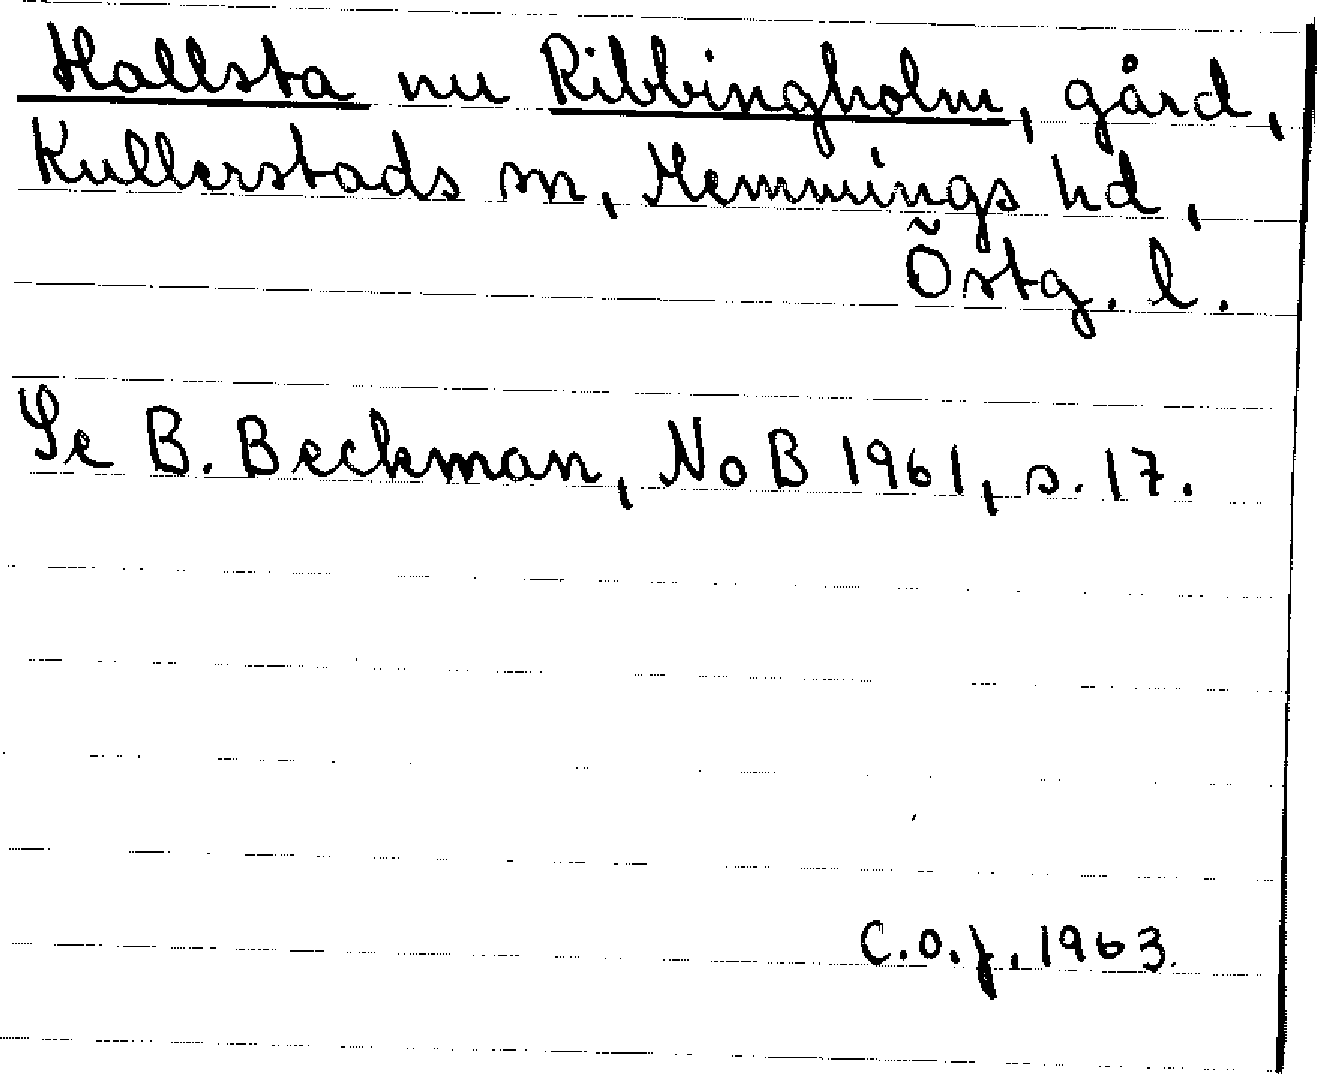 Hallsta nu Ribbingholm, gård,
Kullerstads sn, Memmings hd,
Östg. l.
Se B. Beckman, NoB 1961, s. 17.
C.O.f. 1963.